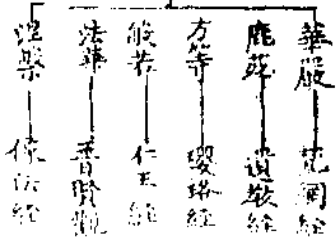 華嚴 梵網経
鹿苑 遺教経
方等 瓔珞経
般若 仁王経
法華 普賢観
涅槃 像法経